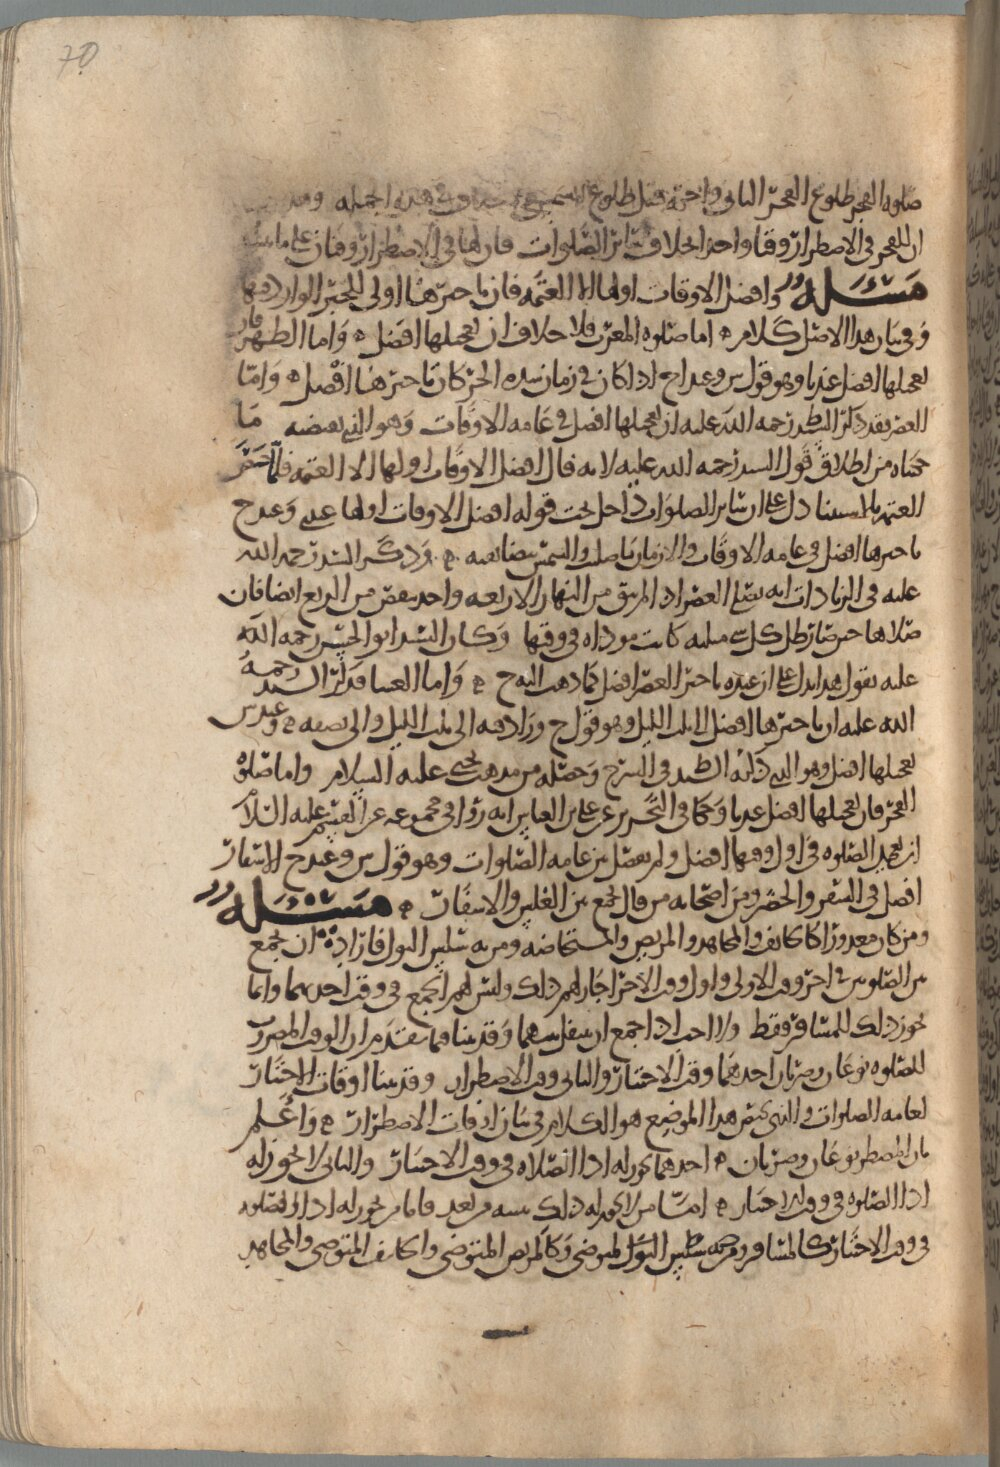 70
صلوه الفجر طلوع الفجر الثاني واخره قبل طلوع الشمس في هذه الجمله وقد
ان للفجر في الاضطرار وقتا واحدا بخلاف سائر الصلوات فان لها في الاضطرار وقتان على ما
مسئله وافضل الاوقات اولها الا العتمه فان تاخيرها اولى للخبر الوارد فيها
وفي بيان هذا الاصل كلام اما صلوه المغرب فلا خلاف ان تعجيلها افضل واما الظهر فان
تعجيلها افضل عندنا وهو قول ش وعند ح اذا كان في زمان شده الحر كان تاخيرها افضل واما
العصر فقد ذكر السيد رحمه الله عليه ان تعجيلها افضل في عامه الاوقات وهو الذي يعضه ما
حكيناه من اطلاق قول السيد رحمه الله عليه لانه قال افضل الاوقات اولها الا العتمه فلما خص
العتمه بالاستثنا دل على ان سائر الصلوات داخل تحت قوله افضل الاوقات اولها وعند ح
تاخيرها افضل في عامه الاوقات والازمان ما صلت والشمس بيضا نقيه وذكر السيد رحمه الله
عليه في الزيادات انه يصلي العصر اذا لم يبق من النهار الا ربعه واحد ينقص من الربع ايضا فان
صلاها حين صار ظل كل شي مثليه كانت موداه في وقتها وكان السيد ابو الحسين رحمه الله
عليه يقول هذا يدل على ان عنده تاخير العصر افضل كما ذهب اليه ح واما العشا فذكر السيد رحمه
الله عليه ان تاخيرها افضل الى ثلث الليل وهو قول ح وزاد فيه الى ثلث الليل والى نصفه وعند ش
تعجيلها افضل وهو الذي ذكره السيد في الشرح وحصله من مذهب يحيى عليه السلام واما صلوه
الفجر فان تعجيلها افضل عندنا وحكى في التحرير عن علي بن العباس انه روى في مجموعه عن القسم عليه السلام
ان تعجيل الصلوه في اول وقتها افضل ولم يفصل بين عامه الصلوات وهو قول ش وعند ح الاسفار
افضل في السفر والحضر ومن اصحابه من قال يجمع بين الغلس والاسفار مسئله
ومن كان معذورا كالخائف والمجاهد والمريض والمستحاضه ومن به سلس البول فاراد ان يجمع
بين الصلوتين في اخر وقت الاولى واول وقت الاخرى جاز لهم ذلك وليس لهم الجمع في وقت احديهما وانما
يجوز ذلك للمسافر فقط ولا احب اذا جمع ان يتنفل بينهما وقد بينا فيما تقدم ان الوقت المضروب
للصلوه نوعان وضربان احدهما وقت الاختيار والثاني وقت الاضطرار وقد بينا اوقات الاختيار
لعامه الصلوات والذي يختص هذا الموضع هو الكلام في بيان اوقات الاضطرار واعلم
بان المضطر نوعان وضربان احدهما يجوز له اداء الصلاه في وقت الاختيار والثاني لا يجوز له
اداء الصلوه في وقت الاختيار امـا من لا يجوز له ذلك من بعد فاما من يجوز له اداء الصلوه
في وقت الاختيار كالمسافر ومن به سلس البول المتوضي وكالمريض المتوضي والخائف المتوضي والمجاهد